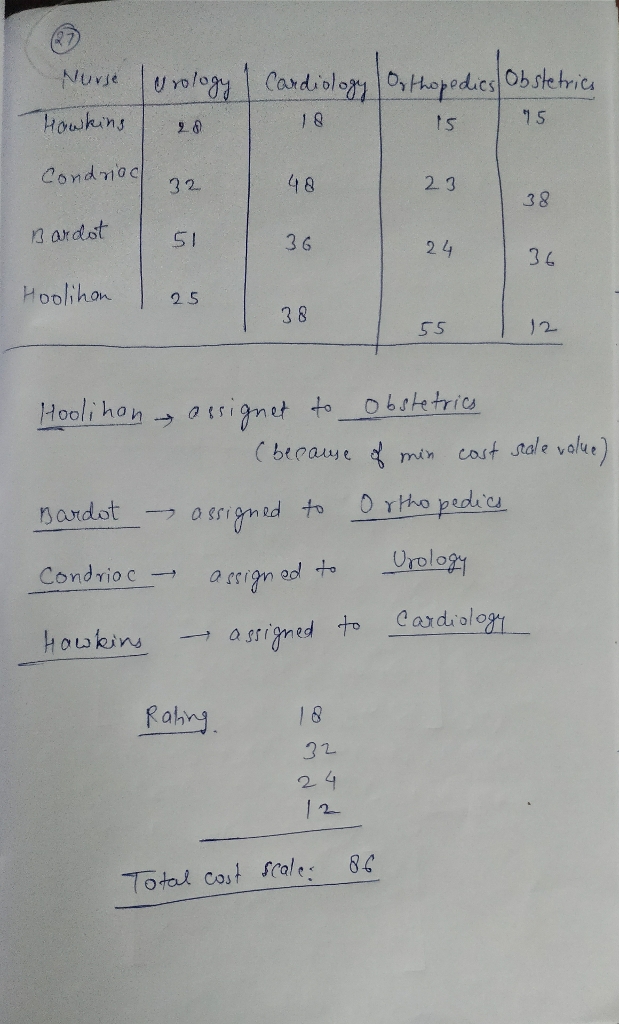 27
Nurse Urology Cardiology Orthopedics Obstetrics
Hawkins 28 18 15 75
Condriac 32 48 23 38
Bardot 51 36 24 36
Hoolihan 25 38 55 12
Hoolihan → assignet to Obstetrics
(because of min cost scale value)
Bardot → assigned to Orthopedics
Condriac → assigned to Urology
Hawkins → assigned to Cardiology
Rating. 18
32
24
12
Total cost scale: 86